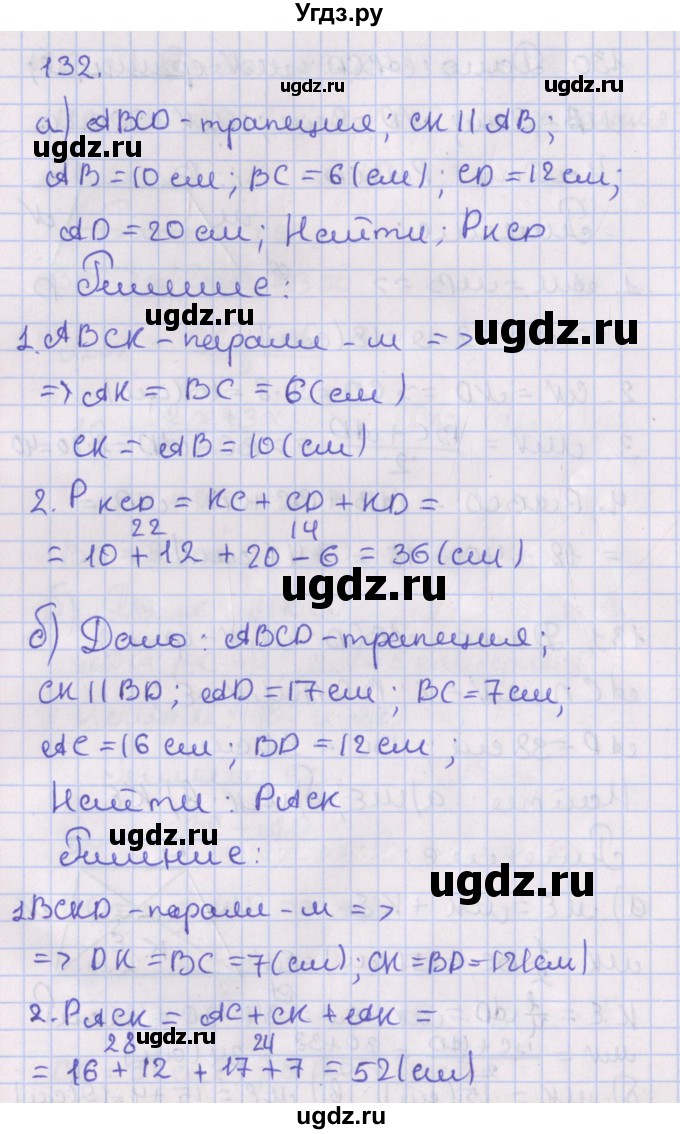 Угдз.ру
132.
а) ABCD - трапеция; CK || AB;
AB = 10 см; BC = 6(см); CD = 12 см;
AD = 20 см; Найти; PKCD
Решение:
1. ABCK - паралл - м =>
=> AK = BC = 6(см)
CK = AB = 10(см)
2. PKCD = KC + CD + KD =
22 14
= 10 + 12 + 20 - 6 = 36(см)
б) Дано: ABCD - трапеция;
CK || BD; AD = 17 см; BC = 7 см;
AC = 16 см; BD = 12 см;
Найти: PACK
Решение:
1. BCKD - паралл - м =>
=> DK = BC = 7(см); CK = BD = 12(см)
2. PACK = AC + CK + AK =
28 24
= 16 + 12 + 17 + 7 = 52(см)
ugdz.ru
ugdz.ru
ugdz.ru
ugdz.ru
ugdz.ru
ugdz.ru
ugdz.ru
ugdz.ru
ugdz.ru
ugdz.ru